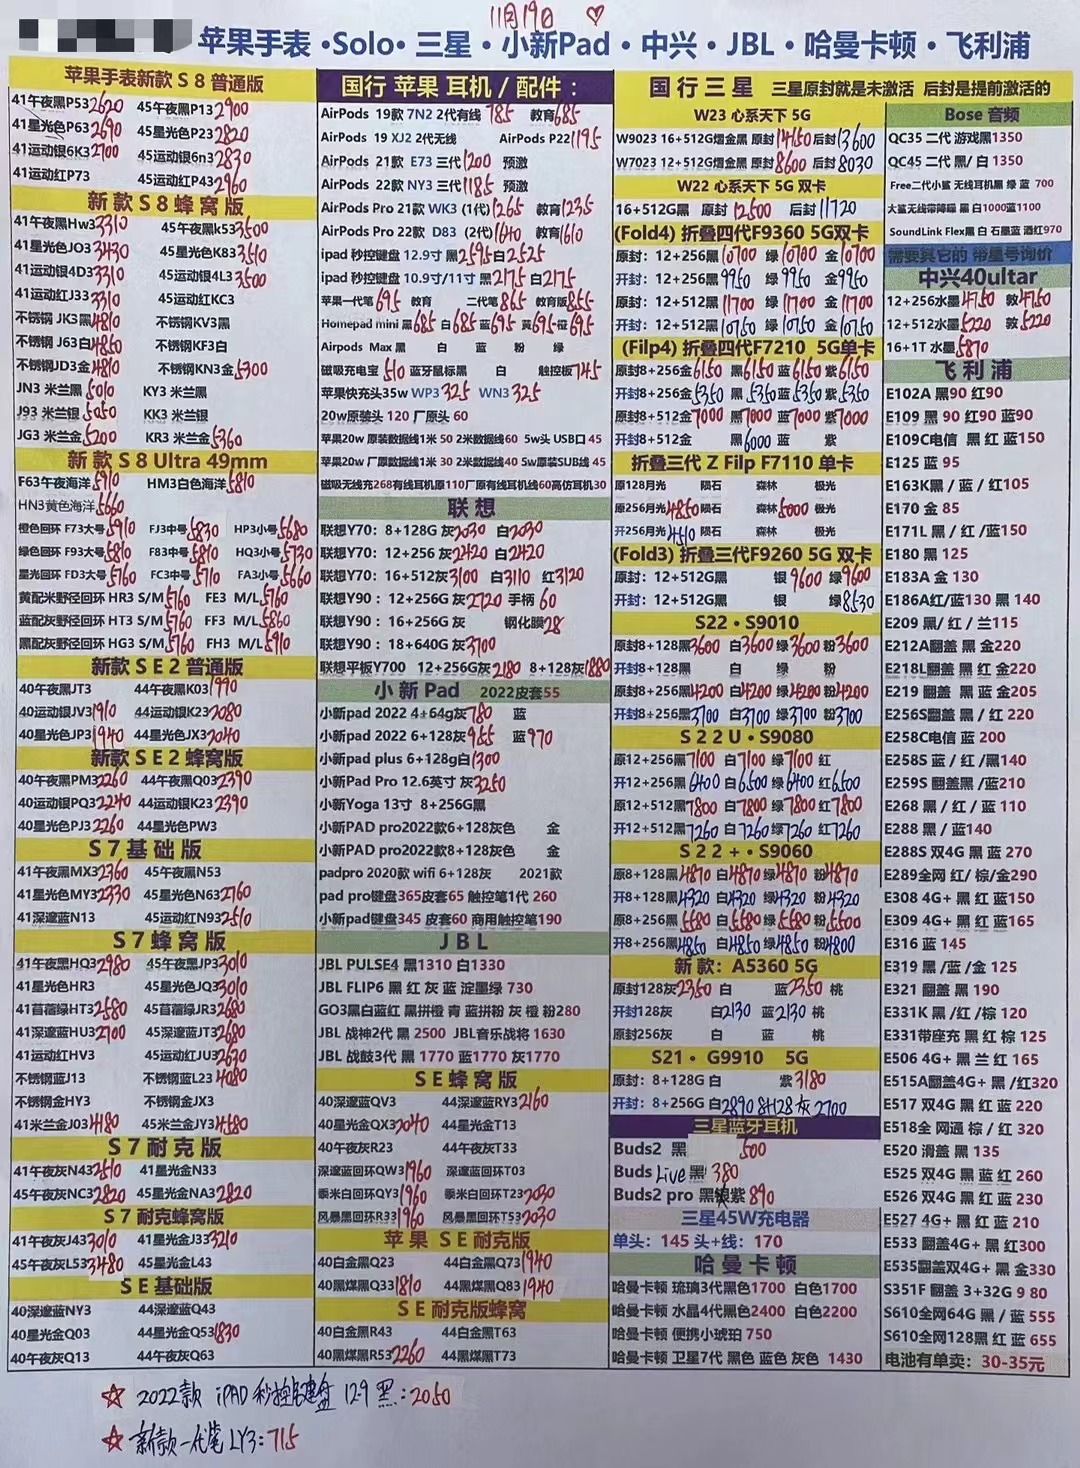 11月19日 ♡
苹果手表·Solo·三星·小新Pad·中兴·JBL·哈曼卡顿·飞利浦
苹果手表新款 S 8 普通版
41午夜黑P53 2620 45午夜黑P13 2900
41星光色P63 2690 45星光色P23 2820
41运动银6K3 2700 45运动银6n3 2830
41运动红P73 45运动红P43 2960
新款 S 8 蜂窝版
41午夜黑Hw3 3310 45午夜黑k53 3500
41星光色JO3 3430 45星光色K83 3510
41运动银4D3 3310 45运动银4L3 3500
41运动红J33 3310 45运动红KC3
不锈钢 JK3黑 4810 不锈钢KV3黑
不锈钢 J63白 4850 不锈钢KF3白
不锈钢JD3金 4810 不锈钢KN3金 5300
JN3 米兰黑 5010 KY3 米兰黑
J93 米兰银 5050 KK3 米兰银
JG3 米兰金 5200 KR3 米兰金 5360
新款 S 8 Ultra 49mm
F63午夜海洋 5910 HM3白色海洋 5810
HN3黄色海洋 5660
橙色回环 F73大号 5910 FJ3中号 5830 HP3小号 5680
绿色回环 F93大号 5810 F83中号 5810 HQ3小号 5730
星光回环 FD3大号 5760 FC3中号 5710 FA3小号 5660
黄配米野径回环 HR3 S/M 5760 FE3 M/L 5760
蓝配灰野径回环 HT3 S/M 5760 FF3 M/L 5860
黑配灰野径回环 HG3 S/M 5760 FH3 M/L 5910
新款 S E 2 普通版
40午夜黑JT3 44午夜黑K03 1990
40运动银JV3 1910 44运动银K23 2080
40星光色JP3 1940 44星光色JX3 2040
新款 S E 2 蜂窝版
40午夜黑PM3 2260 44午夜黑Q03 2390
40运动银PQ3 2240 44运动银K23 2390
40星光色PJ3 2260 44星光色PW3
S 7 基础版
41午夜黑MX3 2360 45午夜黑N53
41星光色MY3 2330 45星光色N63 2760
41深邃蓝N13 45运动红N93 2510
S 7 蜂窝版
41午夜黑HQ3 2980 45午夜黑JP3 3010
41星光色HR3 45星光色JQ3 3010
41苜蓿绿HT3 2580 45苜蓿绿JR3 2680
41深邃蓝HU3 2700 45深邃蓝JT3 2680
41运动红HV3 45运动红JU3 2670
不锈钢蓝J13 不锈钢蓝L23 4080
不锈钢金HY3 不锈钢金JX3
41米兰金J03 4180 45米兰金JY3 4580
S 7 耐克版
41午夜灰N43 2510 41星光金N33
45午夜灰NC3 2820 45星光金NA3 2820
S 7 耐克蜂窝版
41午夜灰J43 3010 41星光金J33 3210
45午夜灰L53 3480 45星光金L43
S E 基础版
40深邃蓝NY3 44深邃蓝Q43
40星光金Q03 44星光金Q53 1830
40午夜灰Q13 44午夜灰Q63
国行 苹果 耳机 / 配件：
AirPods 19款 7N2 2代有线 785 教育 685
AirPods 19 XJ2 2代无线 AirPods P22 1195
AirPods 21款 E73 三代 1200 预激
AirPods 22款 NY3 三代 1185 预激
AirPods Pro 21款 WK3 (1代) 1265 教育 1235
AirPods Pro 22款 D83 (2代) 1640 教育 1610
ipad 秒控键盘 12.9寸 黑 2595 白 2525
ipad 秒控键盘 10.9寸/11寸 黑 2175 白 2175
苹果一代笔 695 教育 二代笔 865 教育版 855
Homepad mini 黑 685 白 685 蓝 695 黄 695 橙 695
Airpods Max 黑 白 蓝 粉 绿
磁吸充电宝 510 蓝牙鼠标黑 白 触控板 745
苹果快充头35w WP3 325 WN3 325
20w原装头 120 厂原头 60
苹果20w 原装数据线1米 50 2米数据线60 5w头 USB口 45
苹果20w 厂原数据线1米 30 2米数据线40 5w原装SUB线 45
磁吸无线充268有线耳机原110厂原有线耳机线60高仿耳机30
联想
联想Y70：8+128G 灰 2030 白 2030
联想Y70：12+256 灰 2420 白 2420
联想Y70：16+512灰 3100 白 3110 红 3120
联想Y90：12+256G 灰 2720 手柄 60
联想Y90：16+256G 灰 钢化膜 28
联想Y90：18+640G 灰 3700
联想平板Y700 12+256G灰 2180 8+128灰 1880
小 新 Pad 2022皮套55
小新pad 2022 4+64g灰 780 蓝
小新pad 2022 6+128灰 955 蓝 970
小新pad plus 6+128g白 1300
小新Pad Pro 12.6英寸 灰 3250
小新Yoga 13寸 8+256G黑
小新PAD pro2022款6+128灰色 金
小新PAD pro2022款8+128灰色 金
padpro 2020款 wifi 6+128灰 2021款
pad pro键盘365皮套65 触控笔1代 260
小新pad键盘345 皮套60 商用触控笔190
J B L
JBL PULSE4 黑1310 白1330
JBL FLIP6 黑 红 灰 蓝 淀墨绿 730
GO3黑白蓝红 黑拼橙 青 蓝拼粉 灰 橙 粉280
JBL 战神2代 黑 2500 JBL音乐战将 1630
JBL 战鼓3代 黑 1770 蓝1770 灰1770
S E 蜂窝版
40深邃蓝QV3 44深邃蓝RY3 2160
40星光金QX3 2040 44星光金T13
40午夜灰R23 44午夜灰T33
深邃蓝回环QW3 1960 深邃蓝回环T03
黍米白回环QY3 1960 黍米白回环T23 2030
风暴黑回环R33 1960 风暴黑回环T53 2030
苹果 S E 耐克版
40白金黑Q23 44白金黑Q73 1940
40黑煤黑Q33 1810 44黑煤黑Q83 1940
S E 耐克版蜂窝
40白金黑R43 44白金黑T63
40黑煤黑R53 2260 44黑煤黑T73
国行三星 三星原封就是未激活 后封是提前激活的
W23 心系天下 5G
W9023 16+512G熠金黑 原封 14150 后封 13600
W7023 12+512G熠金黑 原封 8600 后封 8030
W22 心系天下 5G 双卡
16+512G黑 原封 12500 后封 11720
(Fold4) 折叠四代F9360 5G双卡
原封：12+256黑 10700 绿 10700 金 10700
开封：12+256黑 9950 绿 9950 金 9950
原封：12+512黑 11700 绿 11700 金 11700
开封：12+512黑 10750 绿 10750 金 10750
(Filp4) 折叠四代F7210 5G单卡
原封8+256金 6150 黑 6150 蓝 6150 紫 6150
开封8+256金 5350 黑 5350 蓝 5350 紫 5350
原封8+512金 7000 黑 7000 蓝 7000 紫 7000
开封8+512金 黑 6000 蓝 紫
折叠三代 Z Filp F7110 单卡
原128月光 陨石 森林 极光
原256月光 4850 陨石 森林 5000 极光
开256月光 4510 陨石 森林 极光
(Fold3) 折叠三代F9260 5G 双卡
原封：12+512G黑 银 9600 绿 9600
开封：12+512G黑 银 绿 8530
S22·S9010
原封8+128黑 3600 白 3600 绿 3600 粉 3600
开封8+128黑 白 绿 粉
原封8+256黑 4200 白 4200 绿 4200 粉 4200
开封8+256黑 3700 白 3700 绿 3700 粉 3700
S 2 2 U·S9080
原12+256黑 7100 白 7100 绿 7100 红
开12+256黑 6400 白 6500 绿 6400 红 6500
原12+512黑 7800 白 7800 绿 7800 红 7800
开12+512黑 7260 白 7260 绿 7260 红 7260
S 2 2 +·S9060
原8+128黑 4870 白 4870 绿 4870 粉 4870
开8+128黑 4320 白 4320 绿 4320 粉 4320
原8+256黑 5580 白 5580 绿 5580 粉 5500
开8+256黑 4850 白 4850 绿 4850 粉 4800
新款：A5360 5G
原封128灰 2350 白 蓝 2350 桃
开封128灰 白 2130 蓝 2130 桃
原封256灰 白 蓝 桃
S21·G9910 5G
原封：8+128G 白 紫 3180
开封：8+256G 白 2890 8+128 灰 2700
三星蓝牙耳机
Buds2 黑 500
Buds Live 黑 380
Buds2 pro 黑 紫 890
三星45W充电器
单头：145 头+线：170
哈曼卡顿
哈曼卡顿 琉璃3代黑色1700 白色1700
哈曼卡顿 水晶4代黑色2400 白色2200
哈曼卡顿 便携小琥珀 750
哈曼卡顿 卫星7代 黑色 蓝色 灰色 1430
Bose 音频
QC35 二代 游戏黑1350
QC45 二代 黑/ 白 1350
Free二代小鲨 无线耳机黑 绿 蓝 700
大鲨无线带降噪 黑 白1000蓝1100
SoundLink Flex黑 白 石墨蓝 酒红970
需要其它的 带星号询价
中兴40ultar
12+256水墨 4750 敦 4750
12+512水墨 5220 敦 5220
16+1T 水墨 5870
飞利浦
E102A 黑90 红90
E109 黑90 红90 蓝90
E109C电信 黑 红 蓝150
E125 蓝 95
E163K黑 / 蓝 / 红105
E170 金 85
E171L 黑 / 红 /蓝150
E180 黑 125
E183A 金 130
E186A红/蓝130 黑 140
E209 黑/ 红 / 兰115
E212A翻盖 黑 金220
E218L翻盖 黑 红 金220
E219 翻盖 黑 蓝 金205
E256S翻盖 黑 / 红 220
E258C电信 蓝 200
E258S 蓝 / 红 /黑140
E259S 翻盖黑 /蓝210
E268 黑 / 红 / 蓝 110
E288 黑 / 蓝140
E288S 双4G 黑 蓝 270
E289全网 红/ 棕/金290
E308 4G+ 黑 红 蓝150
E309 4G+ 黑 红 蓝165
E316 蓝 145
E319 黑 /蓝 /金 125
E321 翻盖 黑 190
E331K 黑 /红 /棕 120
E331带座充 黑 红 棕 125
E506 4G+ 黑 兰 红 165
E515A翻盖4G+ 黑 /红320
E517 双4G 黑 红 蓝 220
E518全 网通 棕 / 红 320
E520 滑盖 黑 135
E525 双4G 黑 蓝 红 260
E526 双4G 黑 红 蓝 230
E527 4G+ 黑 红 蓝 210
E533 翻盖4G+ 黑 红300
E535翻盖双4G+ 黑 金330
S351F 翻盖 3+32G 9 80
S610全网64G 黑 / 蓝 555
S610全网128黑 红 蓝 655
电池有单卖：30-35元
☆ 2022款 iPAD 秒控键盘 12.9 黑：2050
☆ 新款一代笔 LY3：715